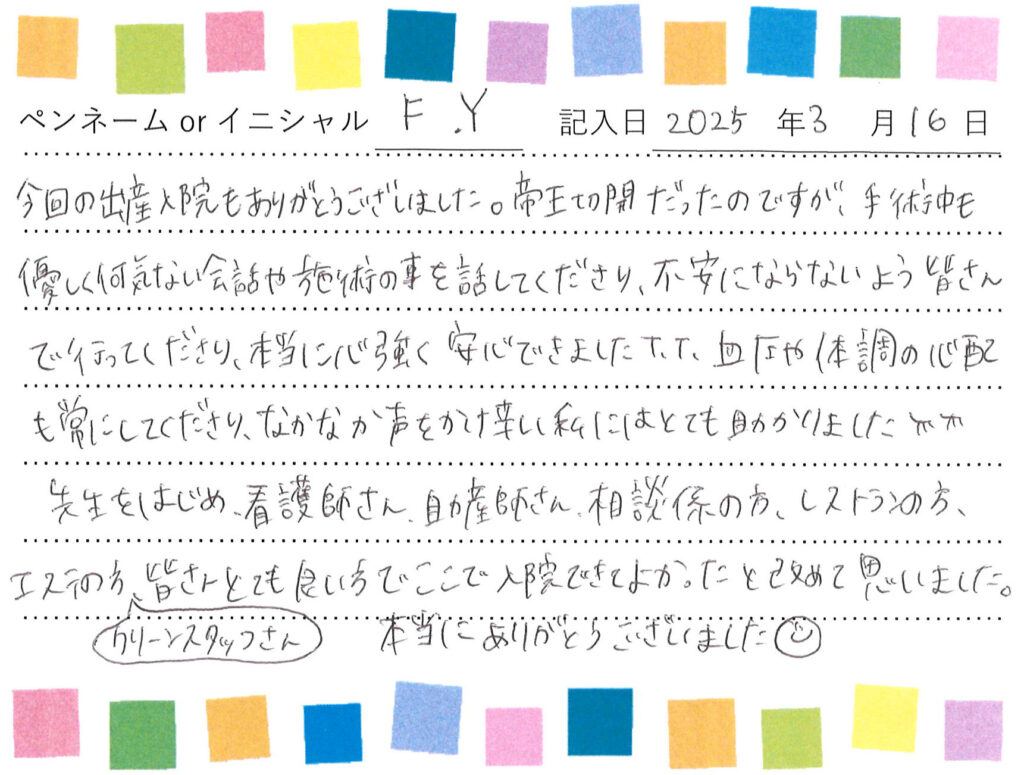 ペンネーム or イニシャル F.Y 記入日 2025 年 3 月 16 日
今回の出産入院もありがとうございました。帝王切開だったのですが、手術中も
優しく何気ない会話や施術の事を話してくださり、不安にならないよう皆さん
で行ってくださり、本当に心強く安心できましたT.T、血圧や体調の心配
も常にしてくださり、なかなか声をかけ辛い私にはとても助かりました
先生をはじめ、看護師さん、助産師さん、相談係の方、レストランの方、
エステの方、皆さんとても良い方でここで入院できてよかったと改めて思いました。
クリーンスタッフさん 本当にありがとうございました